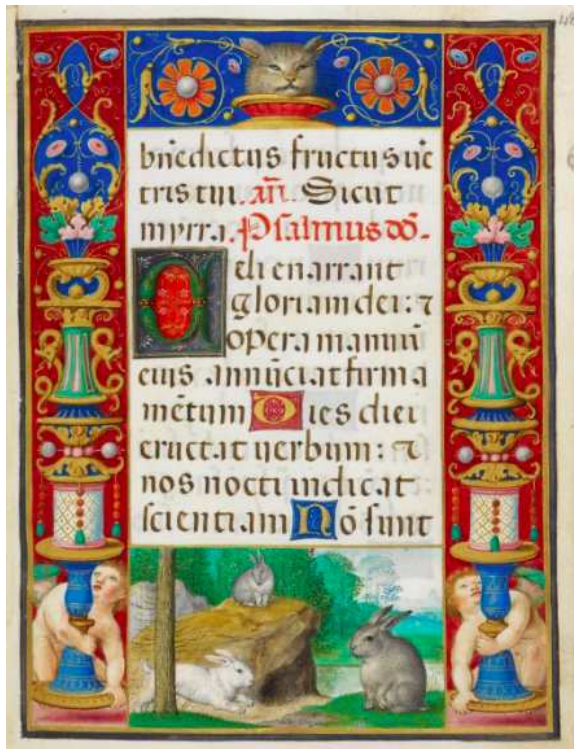 bn̄edictus fructus uē
tris tui. añ. Sicut
myrra. Psalmus dō.
Celi enarrant
gloriam dei: ⁊
opera manuū
eius annūciat firma
mētum Dies diei
eructat uerbum: ⁊
nox nocti indicat
scientiam Nō sunt
48